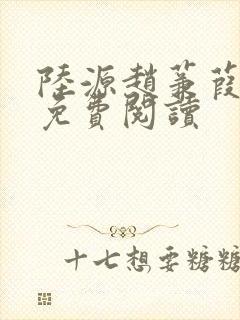 陸源趙蒹葭
免費閱讀
十七想要糖糖